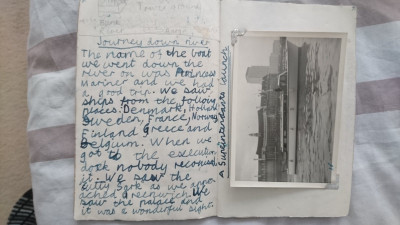 Journey down river
The name of the boat
we went down the
river on was Princess
Mariner and we had
a good trip. We saw
ships from the following
places. Denmark, Holland
Sweden, France, Norway
Finland Greece and
Belgium. When we
got to the execution
dock nobody reconised
it. We saw the
Cutty Sark as we
Greenwich. We
saw the palace and
it was a wonderful sight.
a Superintendants launch